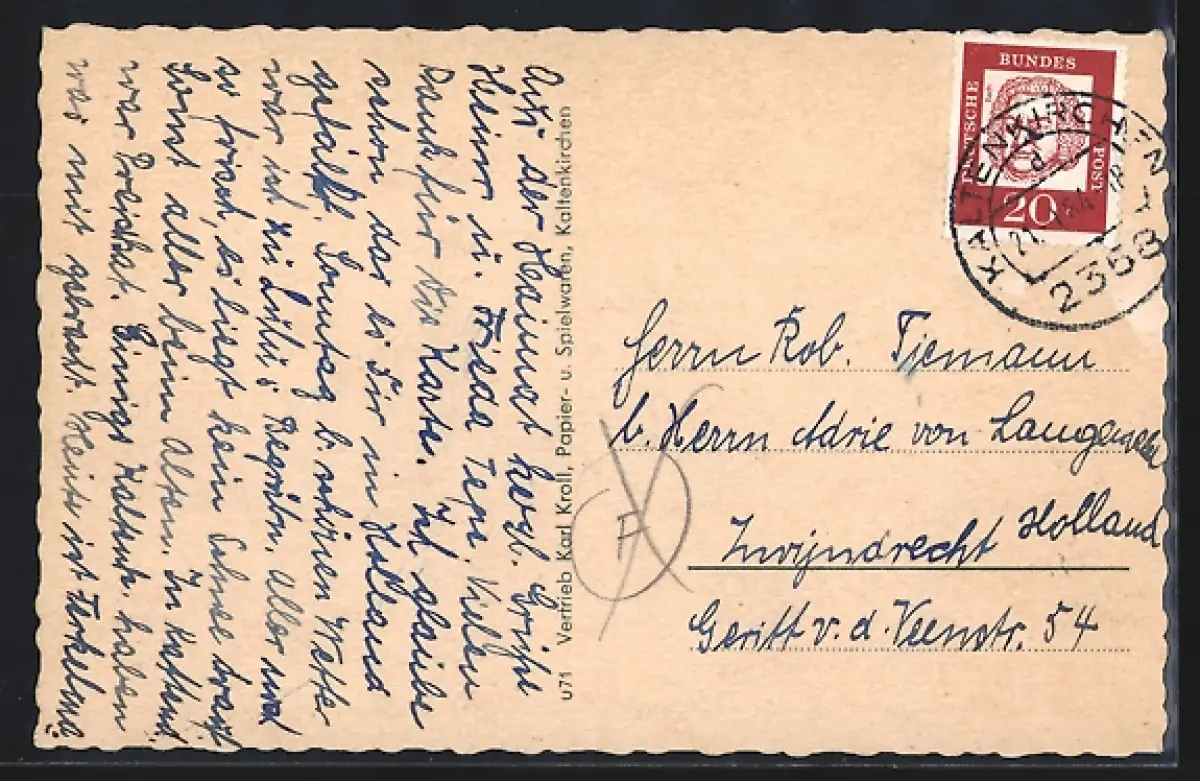 Aus der Heimat herzl. Grüße
Heiner u. Frieda Teps. Vielen
Dank für die Karte. Ich glaube
schon das es Dir in Holland
gefällt. Sonntag b. schönen Wette
war ich zu Begräbn. aller und
so friert, es liegt kein Schnee
Sonst aller beim Alten. In Kaltenk.
war Preiskat. Einige Kaltenk. haben
was mit gebracht. Heute ist
u71 Vertrieb Karl Kroll, Papier- u. Spielwaren, Kaltenkirchen
DEUTSCHE BUNDES POST
20
KALTENKIRCHEN
2358
Herrn Rob. Tiemann
b. Herrn Adrie von
Zwijndrecht Holland
Geritt v. d. Veenstr. 54
F